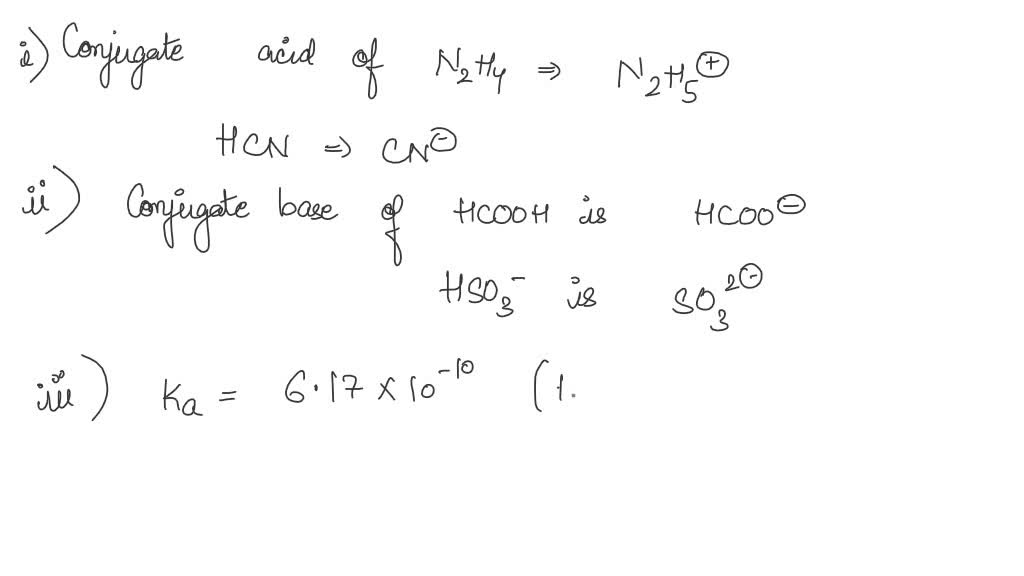 i) Conjugate acid of N₂H₄ ⇒ N₂H₅⊕
HCN ⇒ CN⊖
ii) Conjugate base of HCOOH is HCOO⊖
HSO₃⁻ is SO₃²⊖
iii) Ka = 6.17 × 10⁻¹⁰ (1.